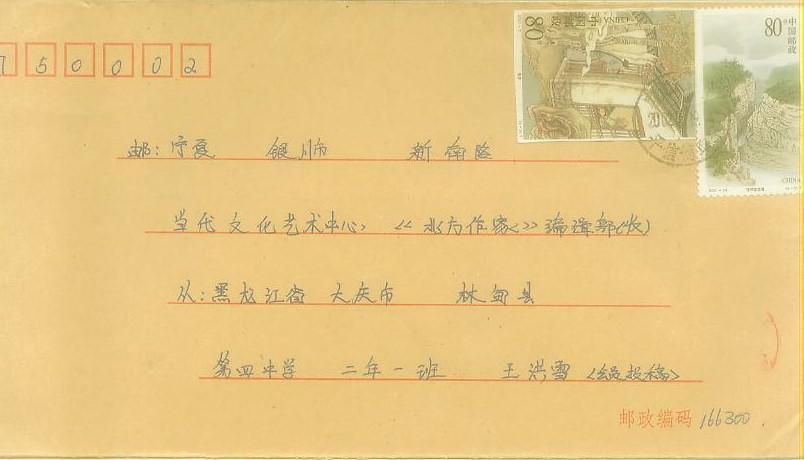 750002
80
中国邮政
CHINA
80
中国邮政
CHINA
邮:宁夏 银川市 新
当代文化艺术中心 《北方作家》编辑部(收)
从:黑龙江省 大庆市 林甸县
第四中学 二年一班 王洪雪
邮政编码 166300